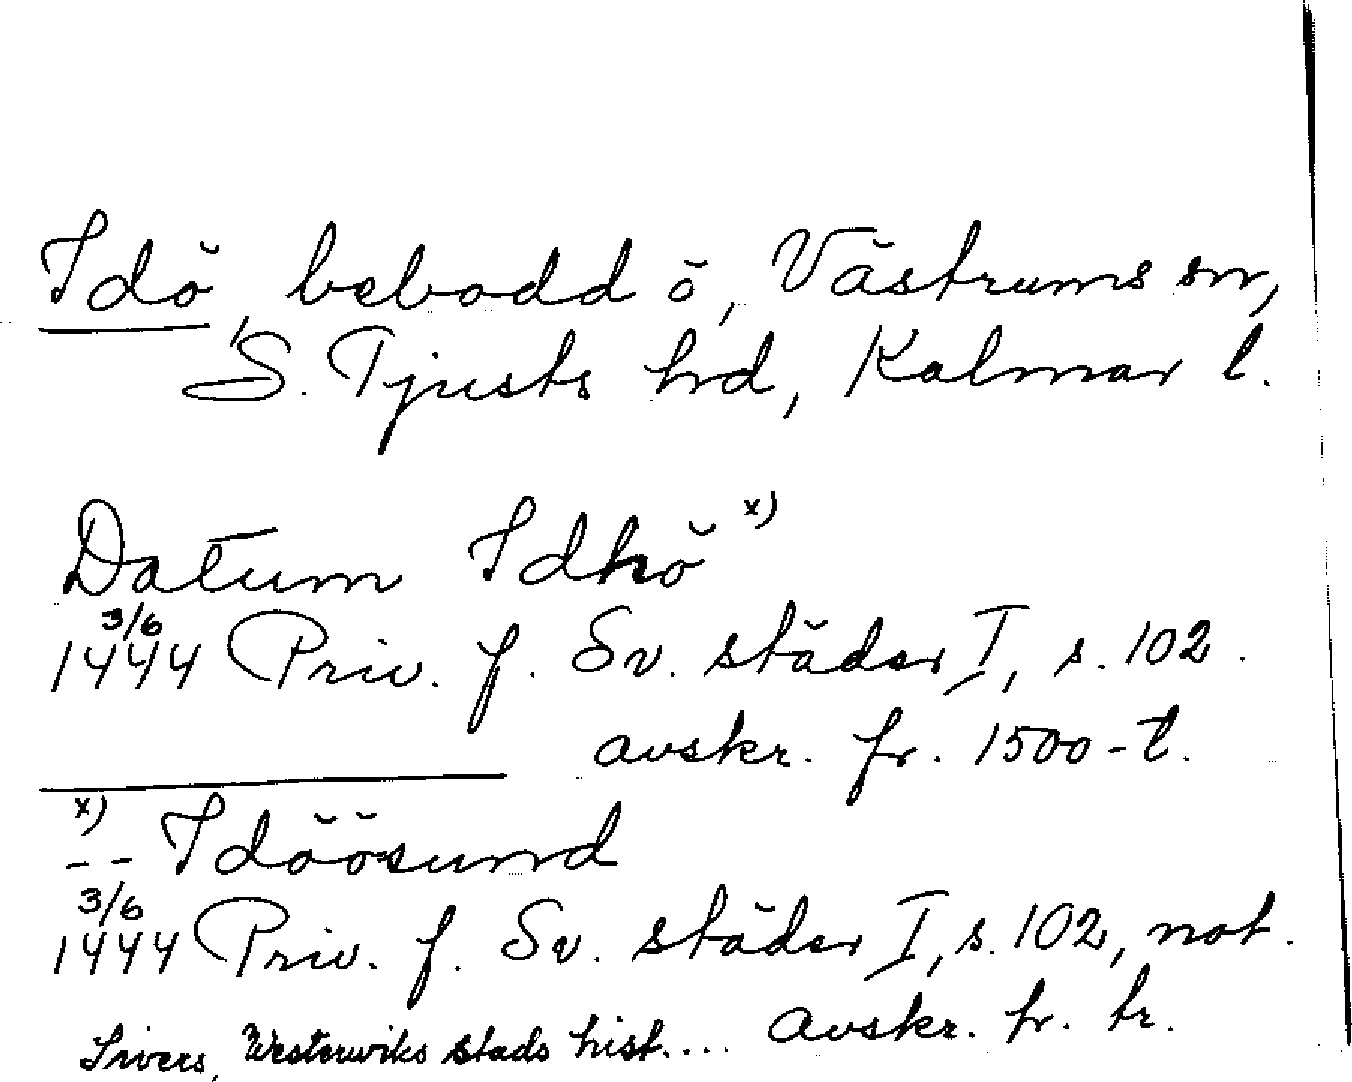 Idö, bebodd ö, Västrums sn,
S. Tjusts hd, Kalmar l.
Datum Idhö x)
3/6
1444 Priv. f. Sv. städer I, s. 102.
avskr. fr. 1500-t.
x)
-- Idöösund
3/6
1444 Priv. f. Sv. städer I, s. 102, not.
avskr. fr. tr.
Sivers, Westerwiks stads hist....